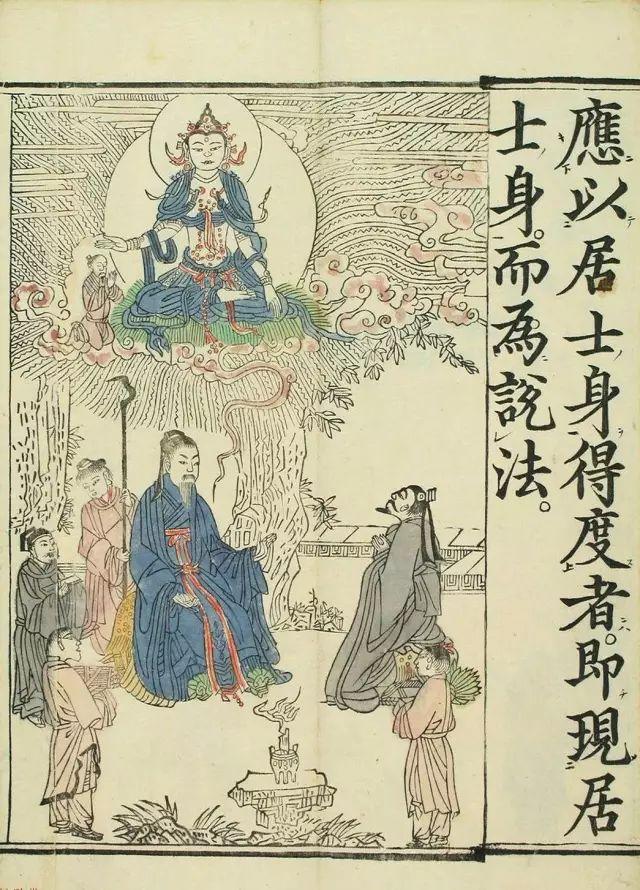 應以居士身得度者。即現居
士身。而為說法。